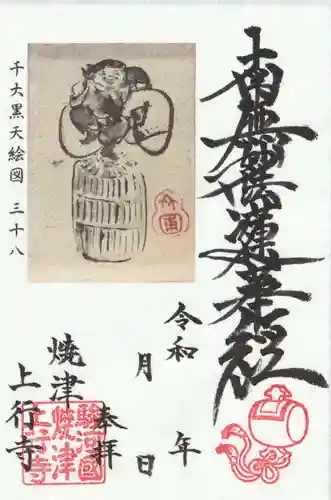 南無妙法蓮華経
千大黒天絵図 三十八
令和 年
月 日
奉拝
焼津
上行寺
駿河國
焼津
上行寺